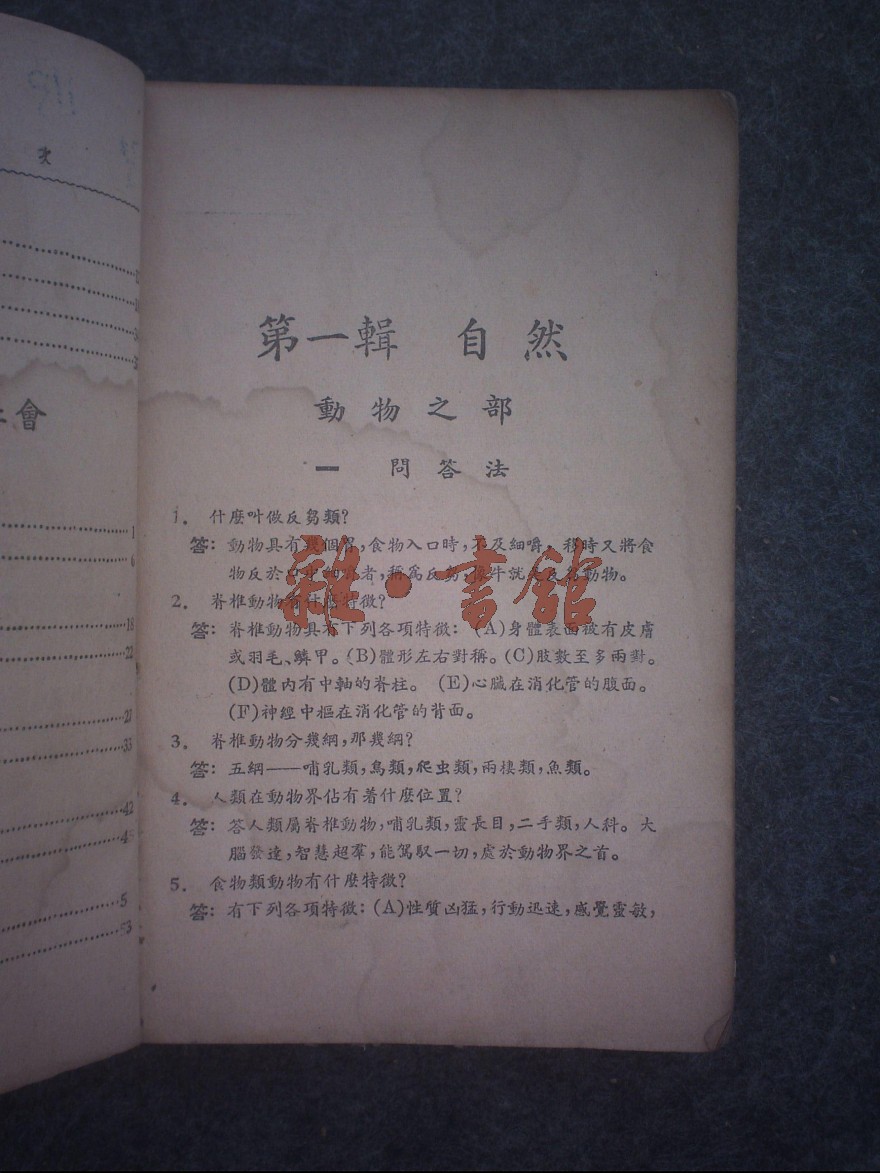 次
會
1
6
18
22
27
33
42
5
53
第一輯 自然
動物之部
一 問答法
1. 什麽叫做反芻類?
答: 動物具有幾個胃,食物入口時,不及細嚼,移時又將食
物反於口中 者,稱爲反芻,像牛就是反芻動物。
2. 脊椎動物有什麽特徵?
答: 脊椎動物具有下列各項特徵: (A)身體表面被有皮膚
或羽毛、鱗甲。(B)體形左右對稱。(C)肢數至多兩對。
(D)體內有中軸的脊柱。 (E)心臟在消化管的腹面。
(F)神經中樞在消化管的背面。
3. 脊椎動物分幾綱,那幾綱?
答: 五綱——哺乳類,鳥類,爬虫類,兩棲類,魚類。
4. 人類在動物界佔有着什麽位置?
答: 答人類屬脊椎動物,哺乳類,靈長目,二手類,人科。大
腦發達,智慧超羣,能駕馭一切,處於動物界之首。
5. 食物類動物有什麽特徵?
答: 有下列各項特徵: (A)性質凶猛,行動迅速,感覺靈敏,
雜·書館